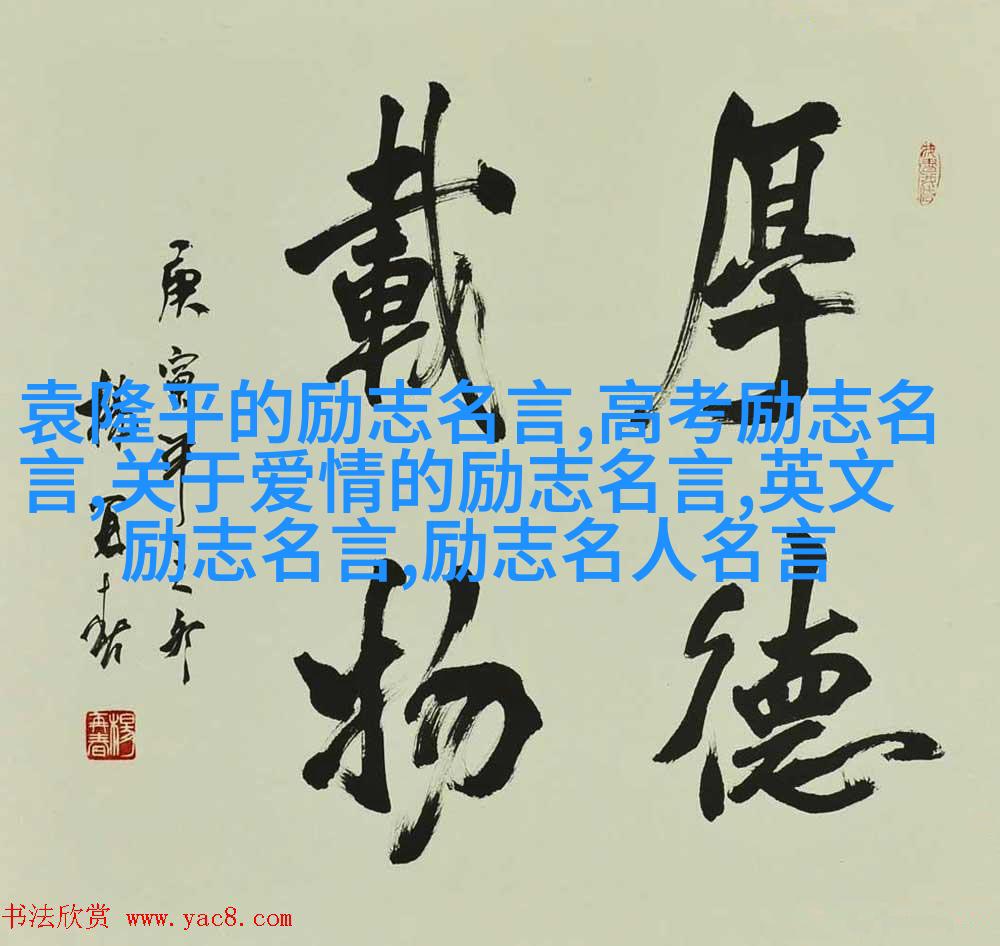 厚德
載物
庚寅年
楊再春
楊再春
袁隆平的励志名言,高考励志名
言,关于爱情的励志名言,英文
励志名言,励志名人名言
书法欣赏 www.yac8.com